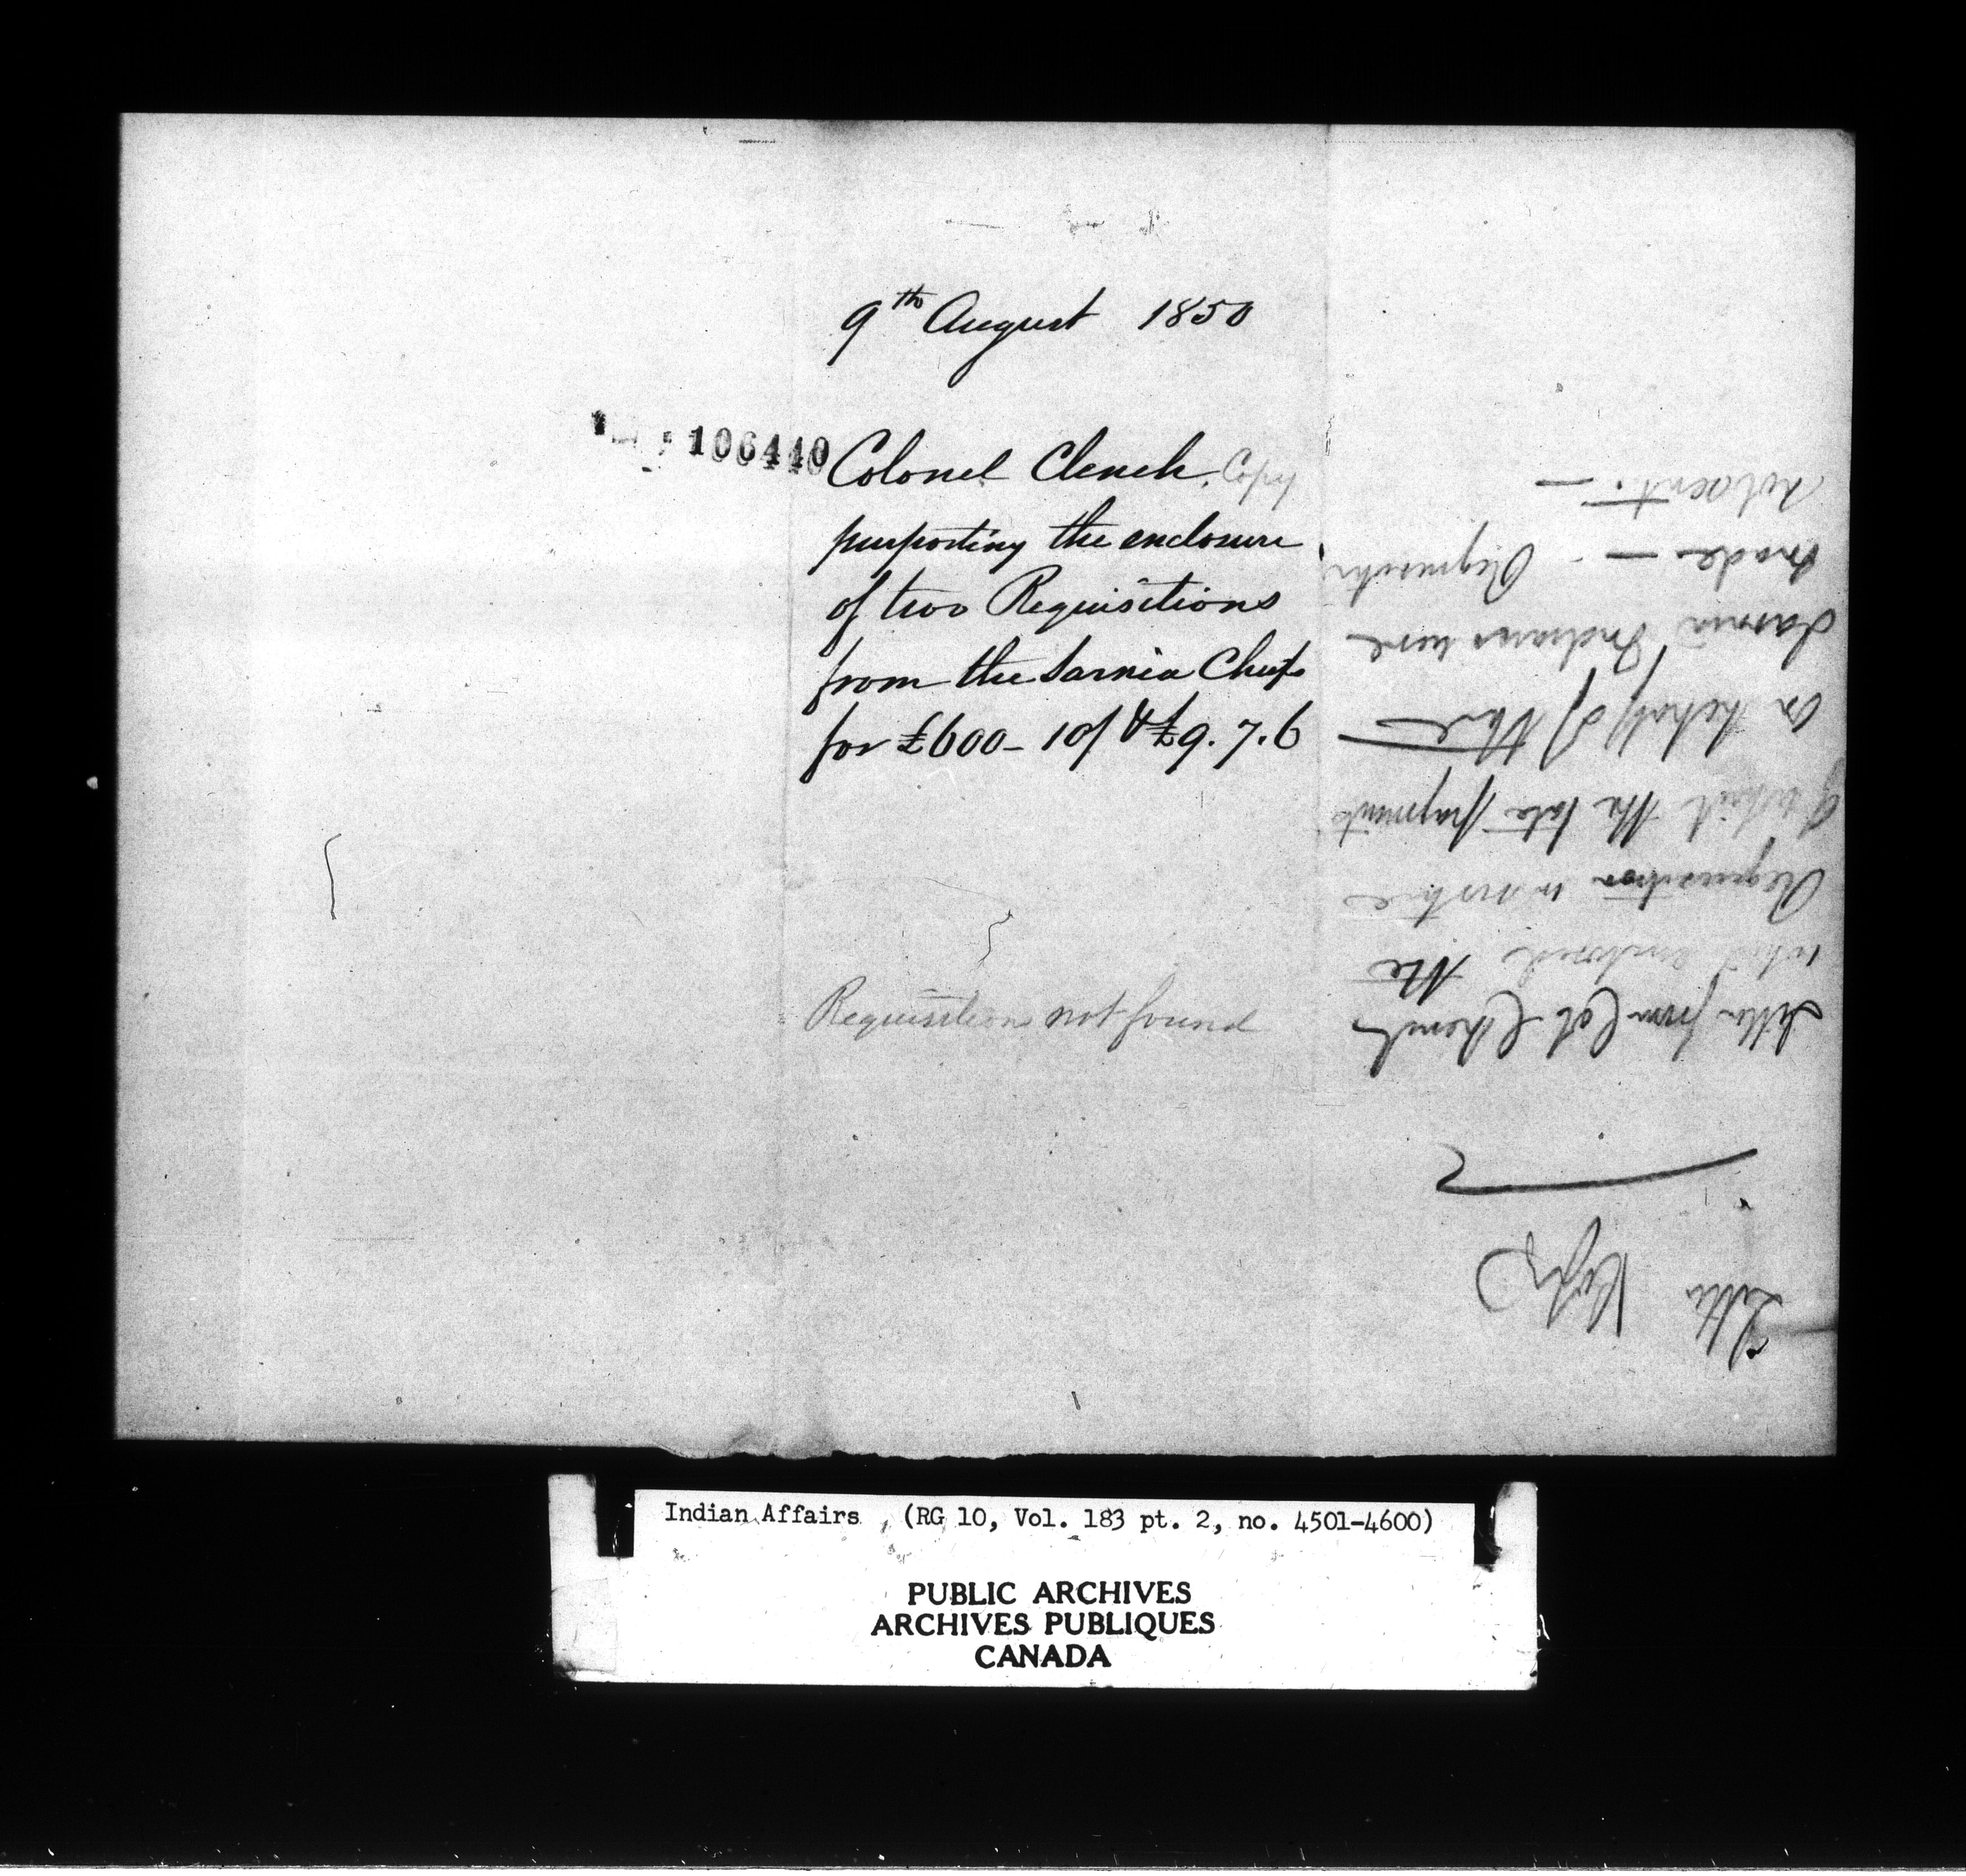 9th August 1850
106440
Colonel Clench. Copy
purporting the enclosure
of two Requisitions
from the Sarnia Chiefs
for £600 - 10/ & £9. 7. 6
Requisitions not found
Letter
Letter from Col Clench
which enclosed the
Requisition in
of which the late payments
on behalf of the
Sarnia Indians were
made — Requisition
not sent. —
Indian Affairs (RG 10, Vol. 183 pt. 2, no. 4501-4600)
PUBLIC ARCHIVES
ARCHIVES PUBLIQUES
CANADA